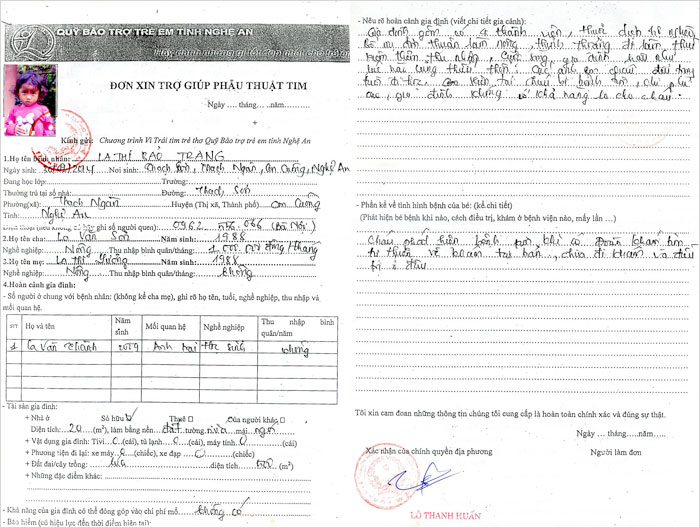 QUỸ BẢO TRỢ TRẺ EM TỈNH NGHỆ AN
Hãy dành những gì tốt đẹp nhất cho trẻ em
ĐƠN XIN TRỢ GIÚP PHẪU THUẬT TIM
Ngày .... tháng.... ..năm.........
Kính gửi: Chương trình Vì Trái tim trẻ thơ Quỹ Bảo trợ trẻ em tỉnh Nghệ An
1.Họ tên bệnh nhân: LA THỊ BẢO TRANG
Ngày sinh: 2014 Nơi sinh: Thạch Sơn, Thạch Ngàn, Con Cuông, Nghệ An
Đang học lớp: Trường:
Thường trú tại số nhà: Đường: Thạch Sơn
Phường(xã): Thạch Ngàn Huyện (Thị xã, Thành phố) Con Cuông
Tỉnh: Nghệ An
0962 586 066
2.Họ tên cha: La Văn Sơn Năm sinh: 1988
Nghề nghiệp: Nông Thu nhập bình quân/tháng: 1.000.000 đồng/tháng
3.Họ tên mẹ: La Thị Năm sinh: 1988
Nghề nghiệp: Nông Thu nhập bình quân/tháng: không
4.Hoàn cảnh gia đình:
- Số người ở chung với bệnh nhân: (không kể cha mẹ), ghi rõ họ tên, tuổi, nghề nghiệp, thu nhập và
mối quan hệ.
STT Họ và tên Năm sinh Mối quan hệ Nghề nghiệp Thu nhập bình quân/năm
1 La Văn Thành 2009 Anh trai Học sinh không
- Tài sản gia đình:
+ Nhà ở Sở hữu Thuê □ Của người khác □
Diện tích: 20 (m²), làm bằng nền đất tường nứa mái ngói
+ Vật dụng gia đình: Tivi 0 (cái), tủ lạnh 0 (cái), máy tính 0 (cái)
+ Phương tiện đi lại: xe máy 0 (chiếc), xe đạp 0 (chiếc)
+ Đất đai/cây trồng: diện tích (m²)
+ Những đặc điểm khác:
- Khả năng của gia đình có thể đóng góp vào chi phí mổ: không có
- Bảo hiểm (có hiệu lực đến thời điểm hiện tại):
- Nêu rõ hoàn cảnh gia đình (viết chi tiết gia cảnh):
Gia đình gồm có 4 thành viên, thuộc diện hộ nghèo
Bố mẹ thuần làm nông, thỉnh thoảng đi làm thuê
thêm thu nhập, cuộc sống gia đình hầu như
lúc nào cũng thiếu thốn. Các anh em
tuổi đi học, con bị bệnh tim, chi phí
cao, gia đình không có khả năng lo cho cháu.
- Phần kể về tình hình bệnh của bé: (kể chi tiết)
(Phát hiện bé bệnh khi nào, cách điều trị, khám ở bệnh viện nào, mấy lần ...)
Cháu phát hiện bệnh khi có đoàn khám tim
từ thiện về khám tại bản, chưa đi khám và điều
trị ở đâu
Tôi xin cam đoan những thông tin chúng tôi cung cấp là hoàn toàn chính xác và đúng sự thật.
Ngày ... tháng.....năm.........
Xác nhận của chính quyền địa phương Người làm đơn
LÔ THANH HUẤN